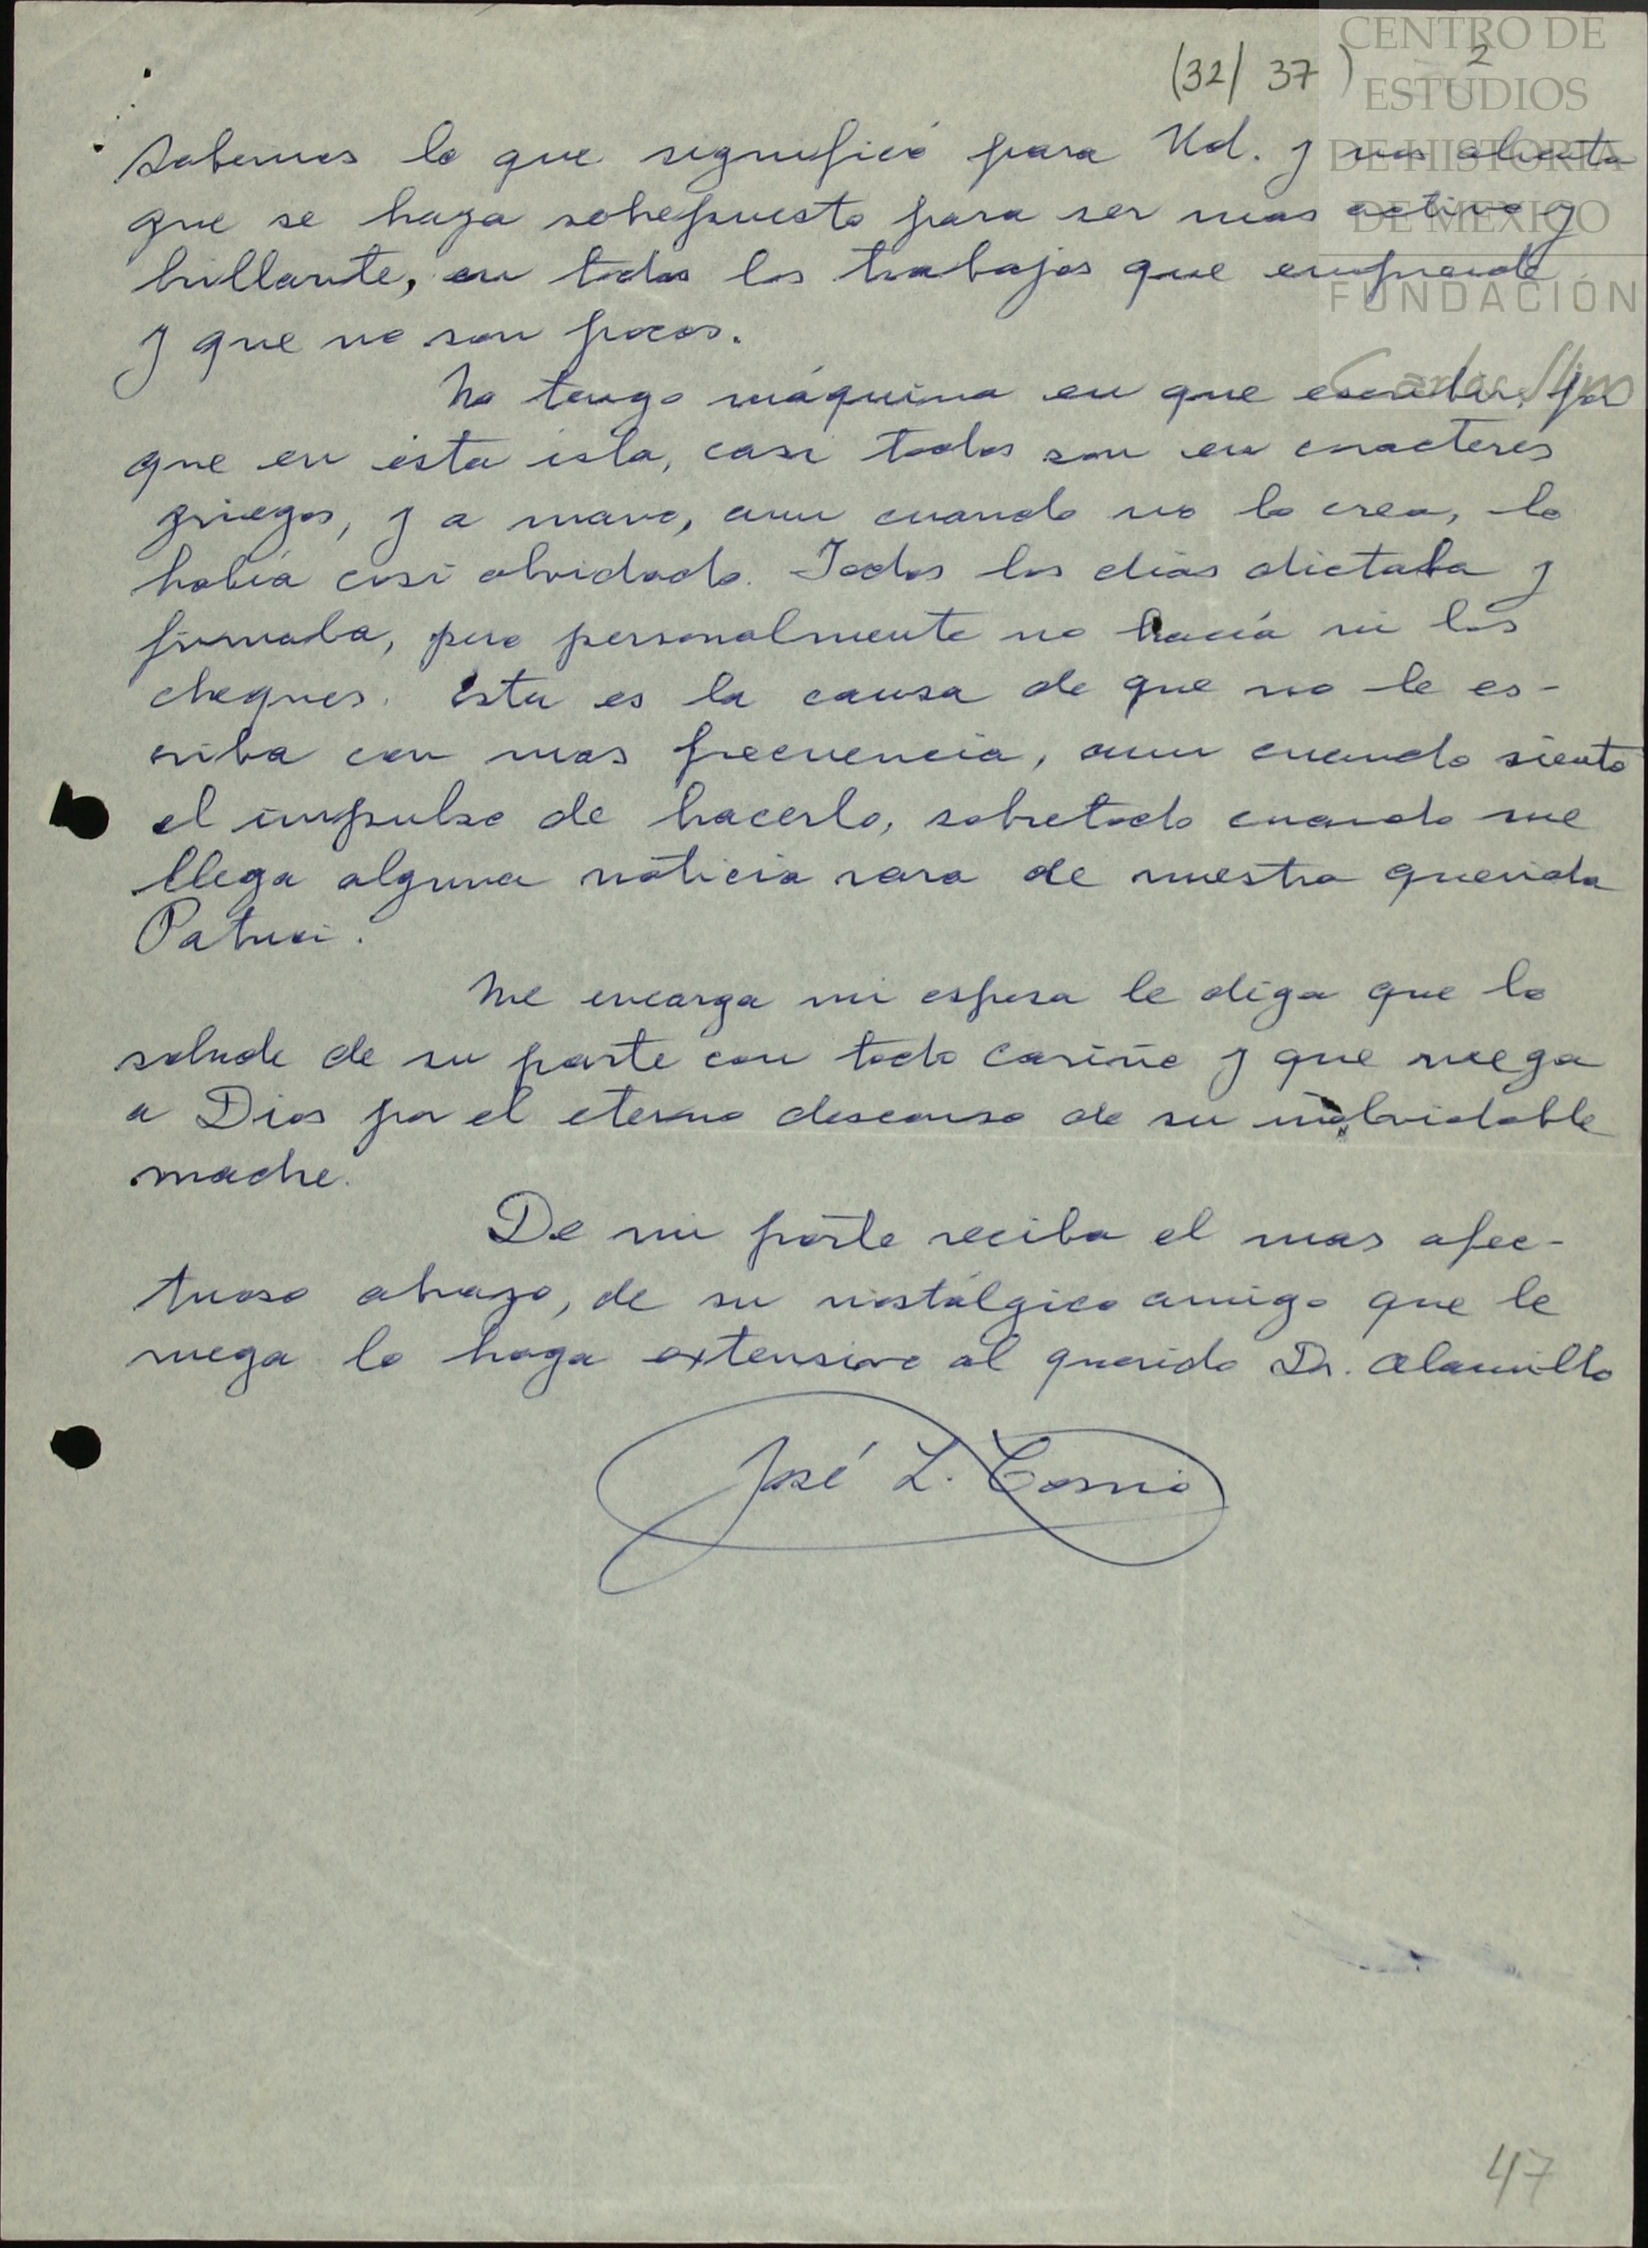 (32/ 37 ) 2
CENTRO DE
ESTUDIOS
DE HISTORIA
DE MEXICO
FUNDACIÓN
Carlos Slim
sabemos lo que significó para Ud. y nos alienta
que se haya sobrepuesto para ser mas activo y
brillante, en todos los trabajos que emprende
y que no son pocos.
No tengo máquina en que escribir, por
que en esta isla, casi todas son en caracteres
griegos, y a mano, aun cuando no lo crea, lo
había casi olvidado. Todos los días dictaba y
firmaba, pero personalmente no hacía ni los
cheques. Esta es la causa de que no le es-
criba con mas frecuencia, aun cuando siento
el impulso de hacerlo, sobretodo cuando me
llega alguna noticia rara de nuestra querida
Patria.
Me encarga mi esposa le diga que lo
salude de su parte con todo cariño y que ruega
a Dios por el eterno descanso de su inolvidable
madre.
De mi parte reciba el mas afec-
tuoso abrazo, de su nostálgico amigo que le
ruega lo haga extensivo al querido Dr. Alamillo
José L. Cosmio
47